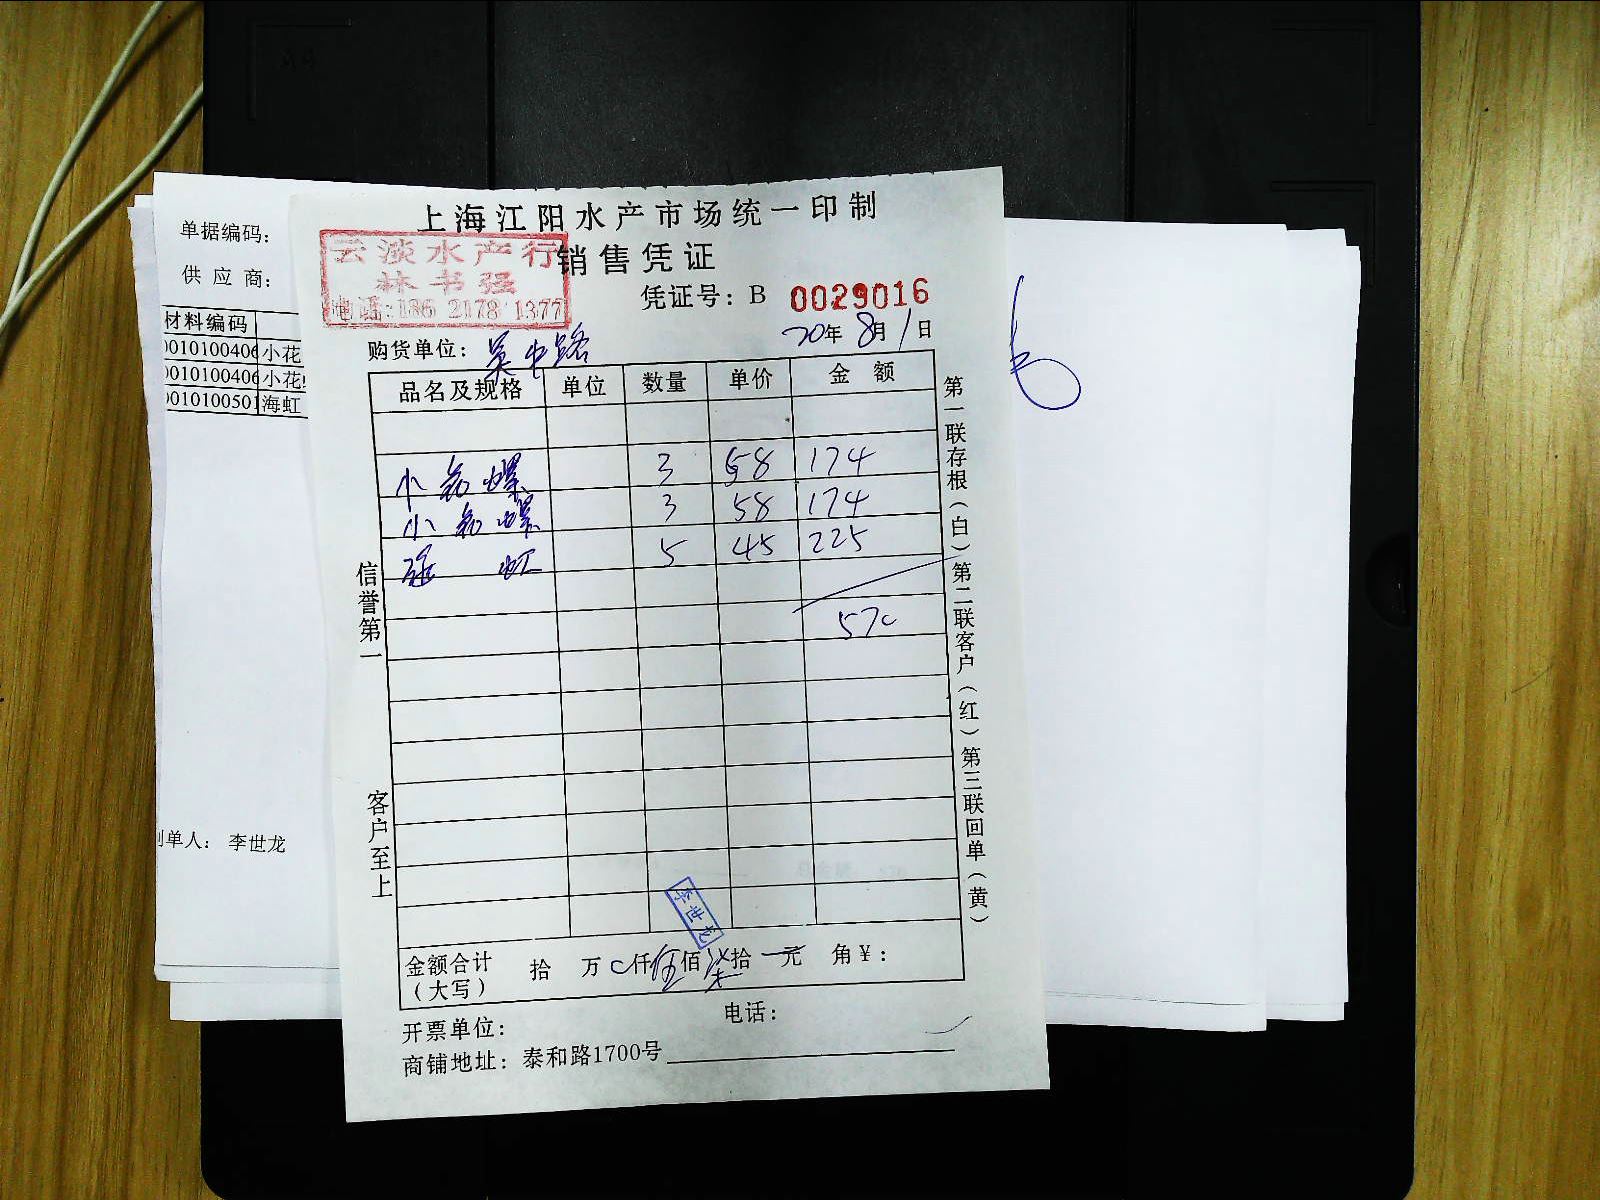 上海江阳水产市场统一印制
云淡水产行
林书强
电话:186 2178 1377
销售凭证
凭证号：B 0029016
购货单位：吴中路 20年8月1日
品名及规格 单位 数量 单价 金额
小花螺 3 58 174
小花螺 3 58 174
海虹 5 45 225
570
金额合计（大写） 拾 万 0仟伍佰柒拾一元 角￥：
李世龙
开票单位： 电话：
商铺地址：泰和路1700号
信誉第一
客户至上
第一联存根（白）第二联客户（红）第三联回单（黄）
单据编码：
供应商：
材料编码
0010100406 小花
0010100406 小花
0010100501 海虹
制单人：李世龙